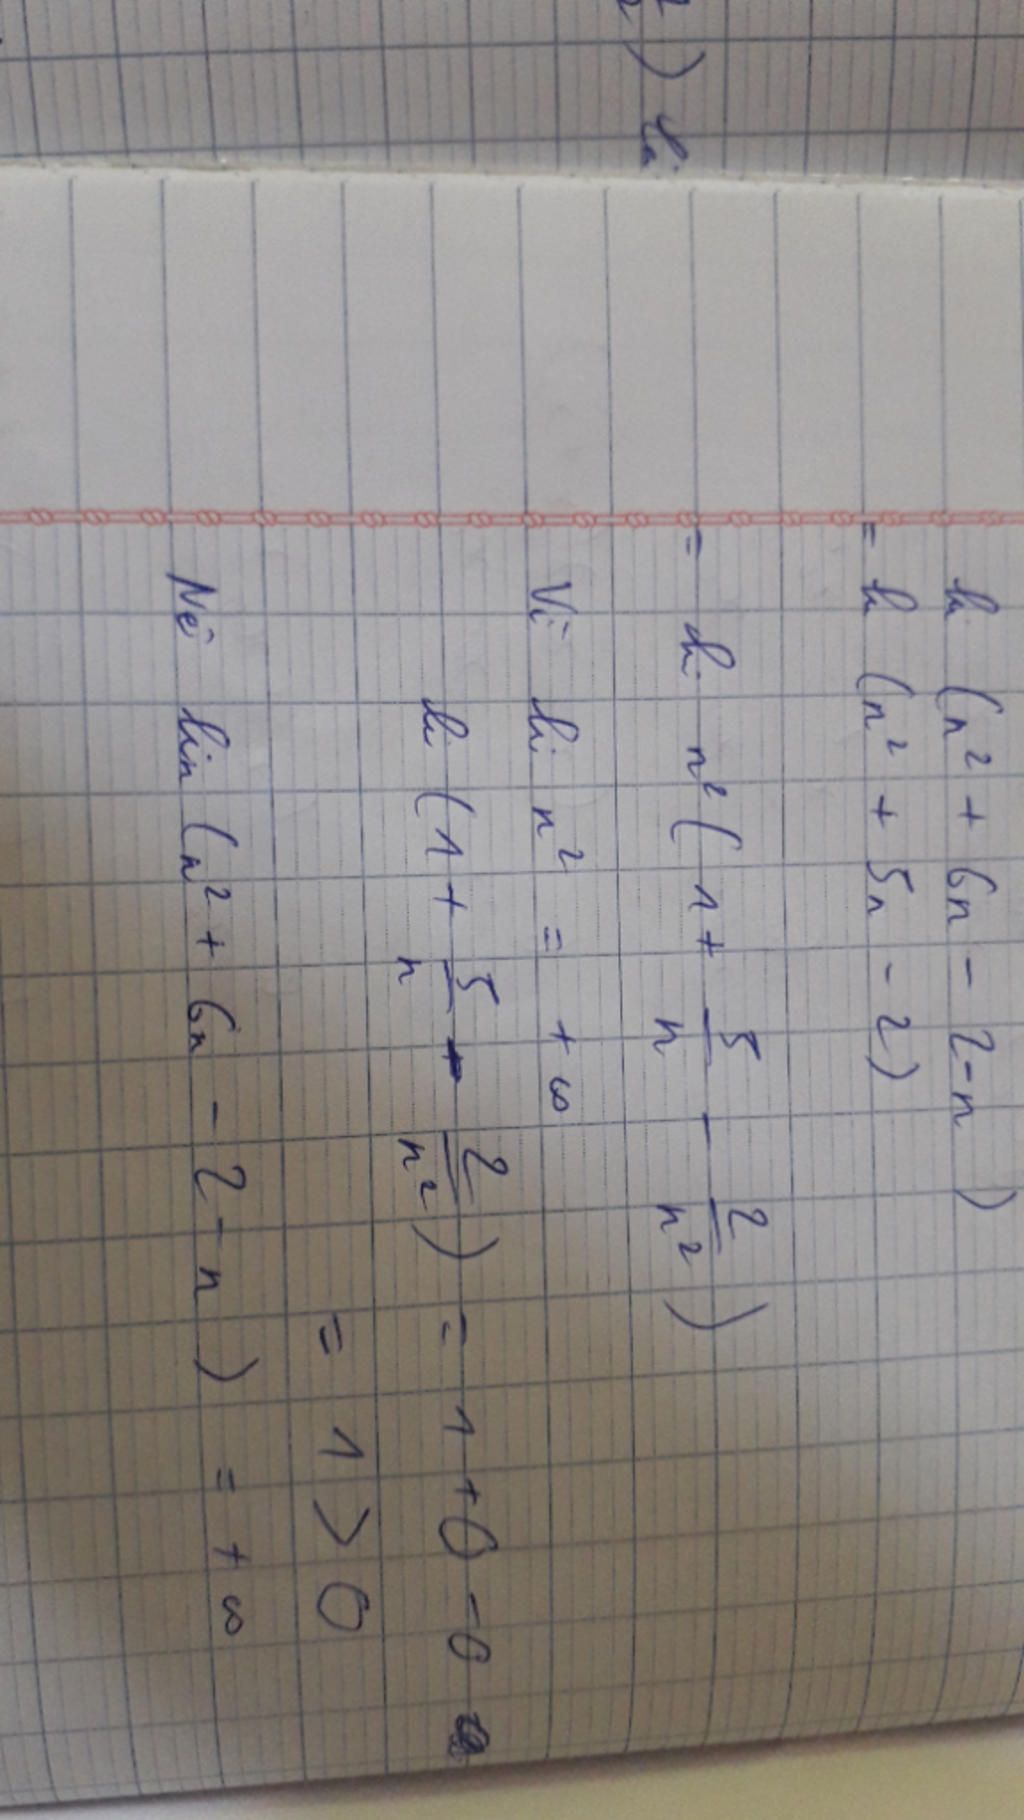 lim (n² + 6n - 2 - n )
= lim (n² + 5n - 2)
= lim n² ( 1 + 5/n - 2/n² )
Vì lim n² = + ∞
lim ( 1 + 5/n - 2/n² ) = 1 + 0 - 0
= 1 > 0
Nê lim (n² + 6n - 2 - n ) = + ∞